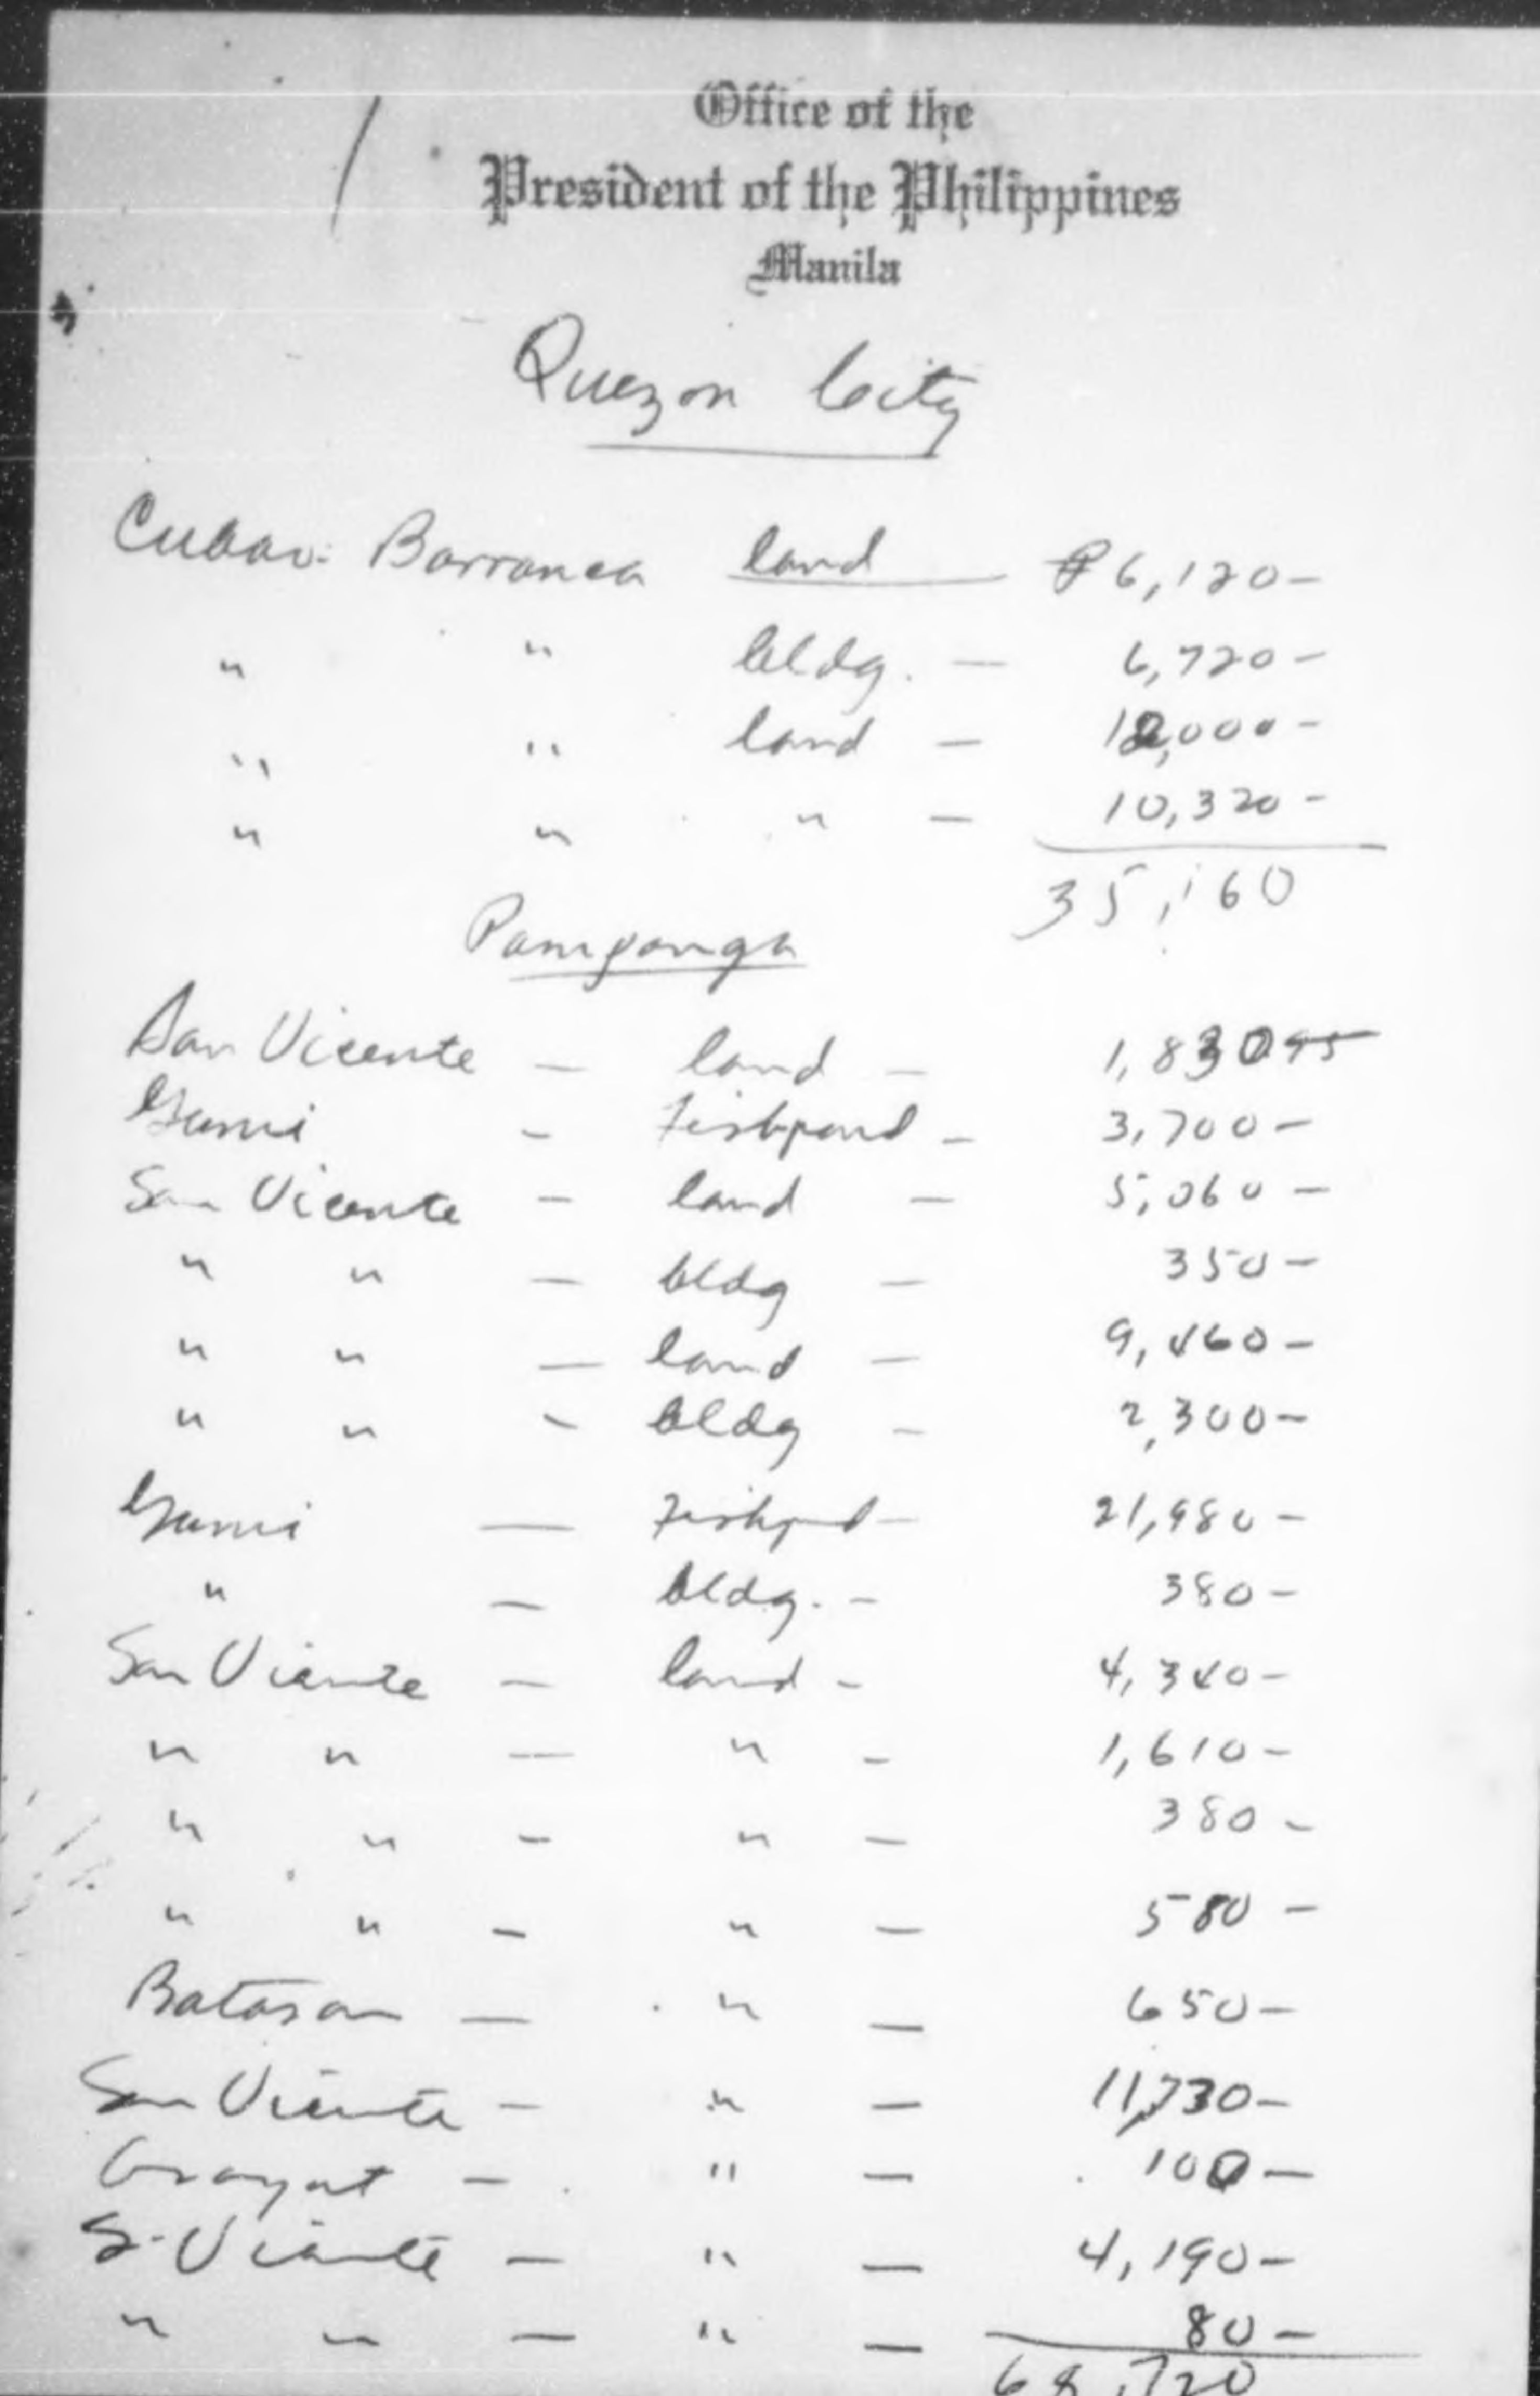 Office of the
President of the Philippines
Manila
Quezon City
Cubao. Barranca land — ₱6,120–
" " bldg. — 6,720–
" " land — 12,000–
" " " — 10,320–
35,160
Pampanga
San Vicente — land – 1,830
– Fishpond – 3,700–
San Vicente – land – 5,060–
" " — bldg – 350–
" " — land – 9,460–
" " – bldg – 2,300–
— Fishpond – 21,980–
" — bldg. – 380–
San Vicente – land – 4,340–
" " — " – 1,610–
" " – " – 380–
" " – " – 580–
Batasan — " — 650–
San Vicente – " — 11,730–
Arayat – " — 100–
S. Vicente – " — 4,190–
" " — " — 80–
68,720